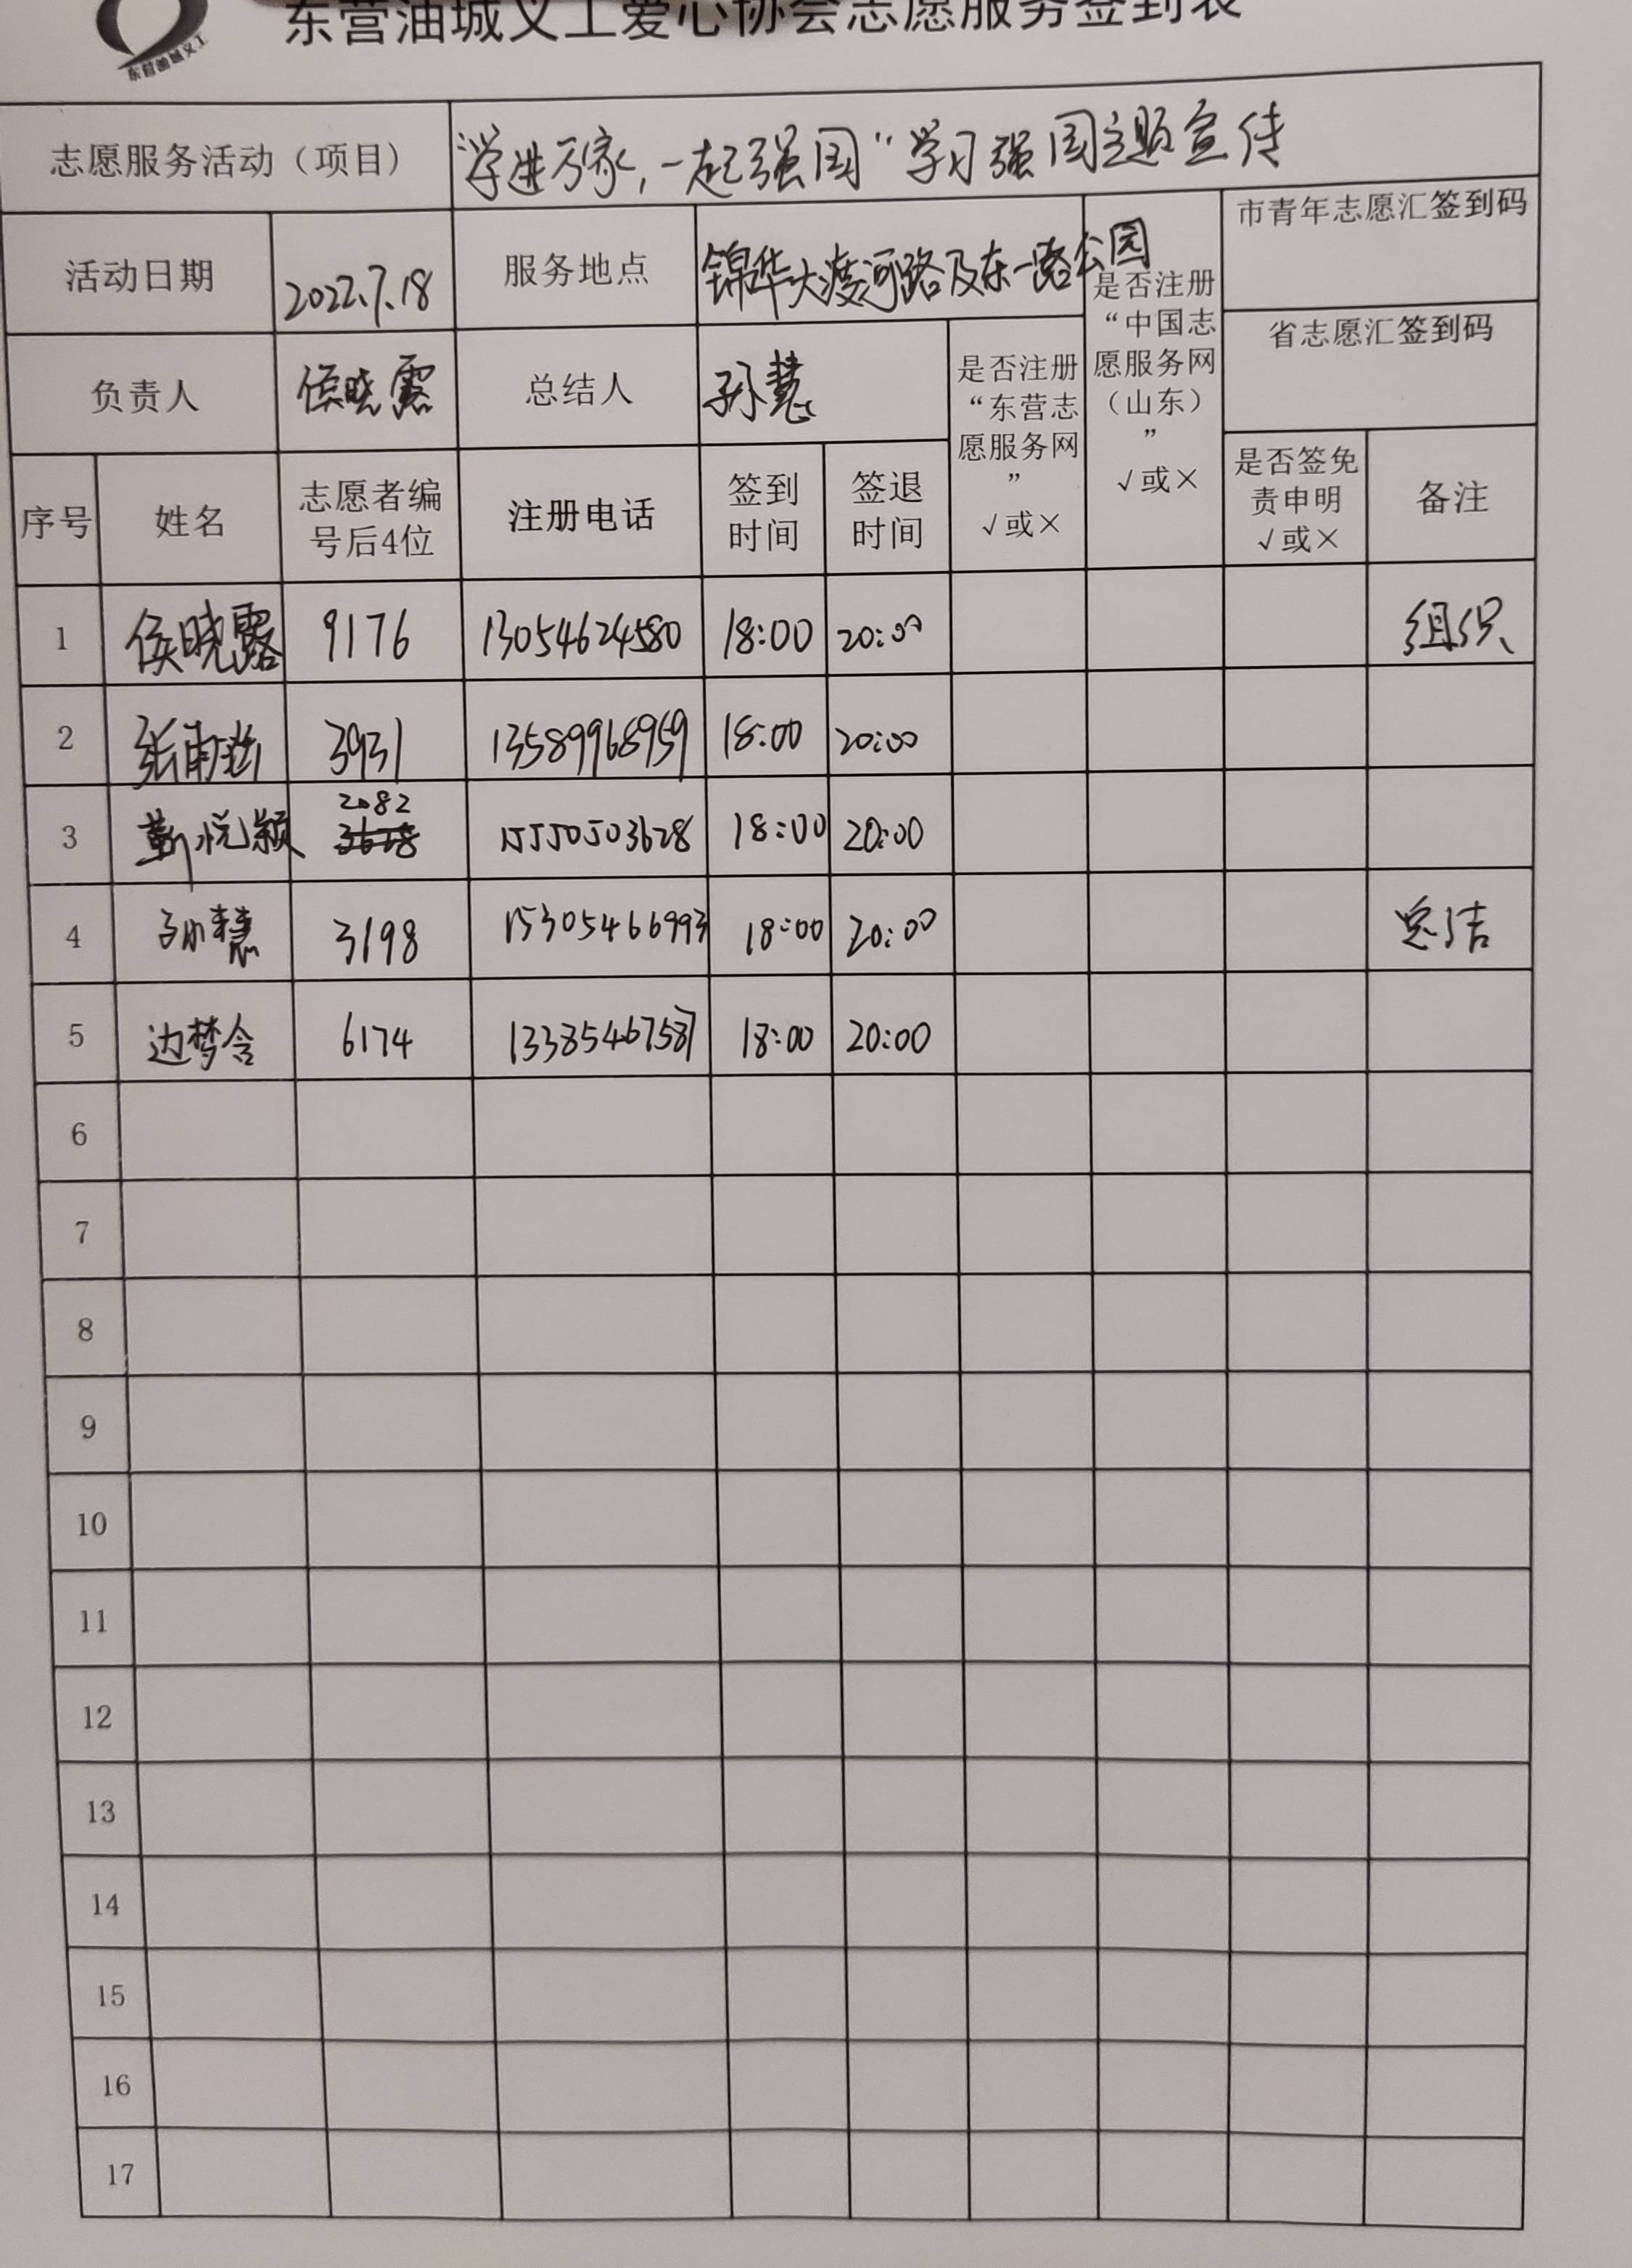 东营油城义工
东营油城义工爱心协会志愿服务签到表
志愿服务活动（项目） “学进万家，一起强国”学习强国主题宣传
活动日期 2022.7.18 服务地点 锦华大渡河路及东一路公园
是否注册“中国志愿服务网（山东）” √或×
市青年志愿汇签到码
省志愿汇签到码
负责人 侯晓露 总结人 孙慧
是否注册“东营志愿服务网” √或×
序号 姓名 志愿者编号后4位 注册电话 签到时间 签退时间 是否签免责申明 √或× 备注
1 侯晓露 9176 13054624580 18:00 20:00 组织
2 张 3931 13589968959 18:00 20:00
3 靳悦颖 2082 15550503628 18:00 20:00
4 孙慧 3198 15305466993 18:00 20:00 总结
5 边梦含 6174 13385467587 18:00 20:00
6
7
8
9
10
11
12
13
14
15
16
17